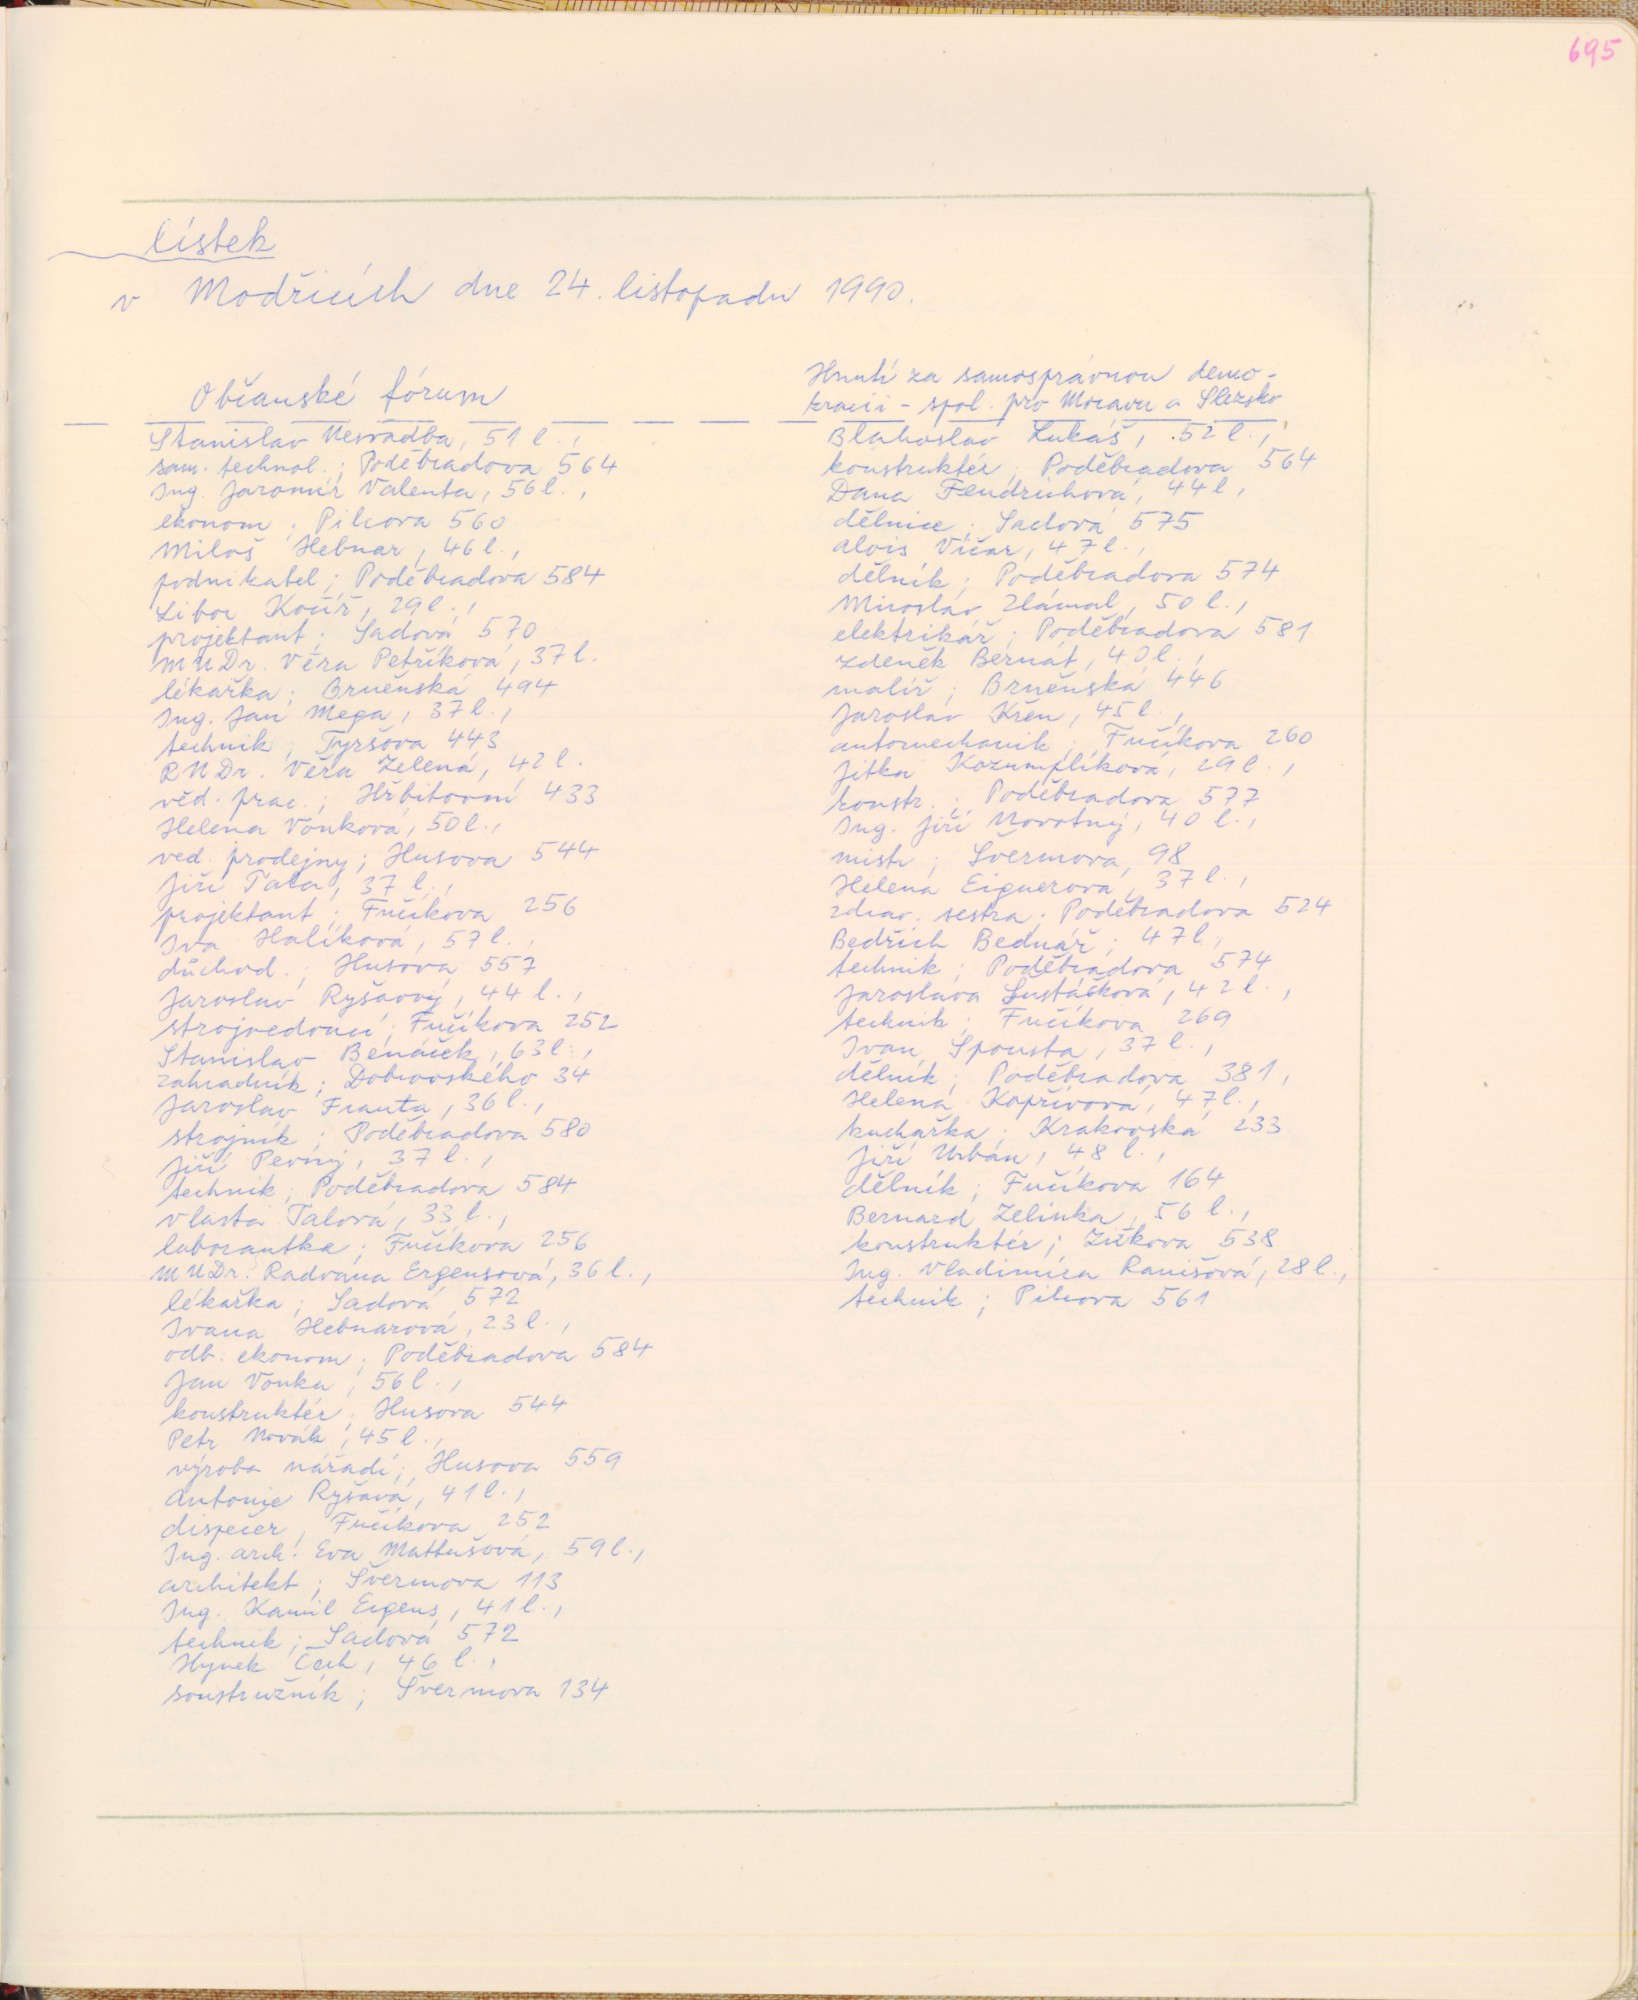 695
lístek
v Modřicích dne 24. listopadu 1990.
Občanské fórum
Stanislav Nesvadba, 51 l.,
sam. technol.; Poděbradova 564
Ing. Jaromír Valenta, 56 l.,
ekonom; Pilcova 560
Miloš Hebnar, 46 l.,
podnikatel; Poděbradova 584
Libor Kočíř, 29 l.,
projektant; Sadová 570
MUDr. Věra Petříková, 37 l.
lékařka; Brněnská 494
Ing. Jan Mega, 37 l.,
technik; Tyršova 443
RNDr. Věra Zelená, 42 l.
věd. prac.; Hřbitovní 433
Helena Vonková, 50 l.,
ved. prodejny; Husova 544
Jiří Tala, 37 l.,
projektant; Fučíkova 256
Iva Halíková, 57 l.,
důchod.; Husova 557
Jaroslav Ryšavý, 44 l.,
strojvedoucí; Fučíkova 252
Stanislav Benáček, 63 l.,
zahradník; Dobrovského 34
Jaroslav Franta, 36 l.,
strojník; Poděbradova 580
Jiří Pevný, 37 l.,
technik; Poděbradova 584
Vlasta Talová, 33 l.,
laborantka; Fučíkova 256
MUDr. Radvana Ergensová, 36 l.,
lékařka; Sadová 572
Ivana Hebnarová, 23 l.,
odb. ekonom; Poděbradova 584
Jan Vonka, 56 l.,
konstruktér; Husova 544
Petr Novák, 45 l.,
výroba nářadí; Husova 559
Antonie Ryšavá, 41 l.,
dispečer, Fučíkova 252
Ing. arch. Eva Mattušová, 59 l.,
architekt; Švermova 113
Ing. Kamil Ergens, 41 l.,
technik; Sadová 572
Hynek Čech, 46 l.,
soustružník; Švermova 134
Hnutí za samosprávnou demo-
kracii - spol. pro Moravu a Slezsko
Blahoslav Lukáš, 52 l.,
konstruktér; Poděbradova 564
Dana Fendrichová, 44 l,
dělnice; Sadová 575
Alois Vičar, 47 l.,
dělník; Poděbradova 574
Miroslav Zlámal, 50 l.,
elektrikář; Poděbradova 581
Zdeněk Bernát, 40 l.,
malíř; Brněnská 446
Jaroslav Křen, 45 l.,
automechanik; Fučíkova 260
Jitka Kozumplíková, 29 l.,
konstr.; Poděbradova 577
Ing. Jiří Novotný, 40 l.,
mistr; Švermova 98
Helena Eignerová, 37 l.,
zdrav. sestra; Poděbradova 524
Bedřich Bednář; 47 l,
technik; Poděbradova 574
Jaroslava Šustáčková, 42 l.,
technik; Fučíkova 269
Ivan Spousta, 37 l.,
dělník; Poděbradova 381,
Helena Kopřivová, 47 l.,
kuchařka; Krakovská 233
Jiří Urbán, 48 l.,
dělník; Fučíkova 164
Bernard Zelinka, 56 l.,
konstruktér; Žižkova 538
Ing. Vladimíra Ranišová, 28 l.,
technik; Pilcova 561